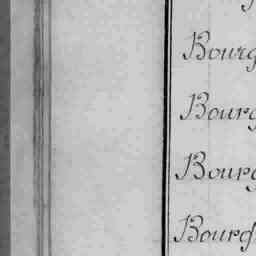 Bourg
Bourg
Bourg
Bourg